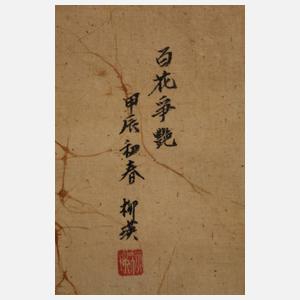 百花爭艷
甲辰初春 柳瑛